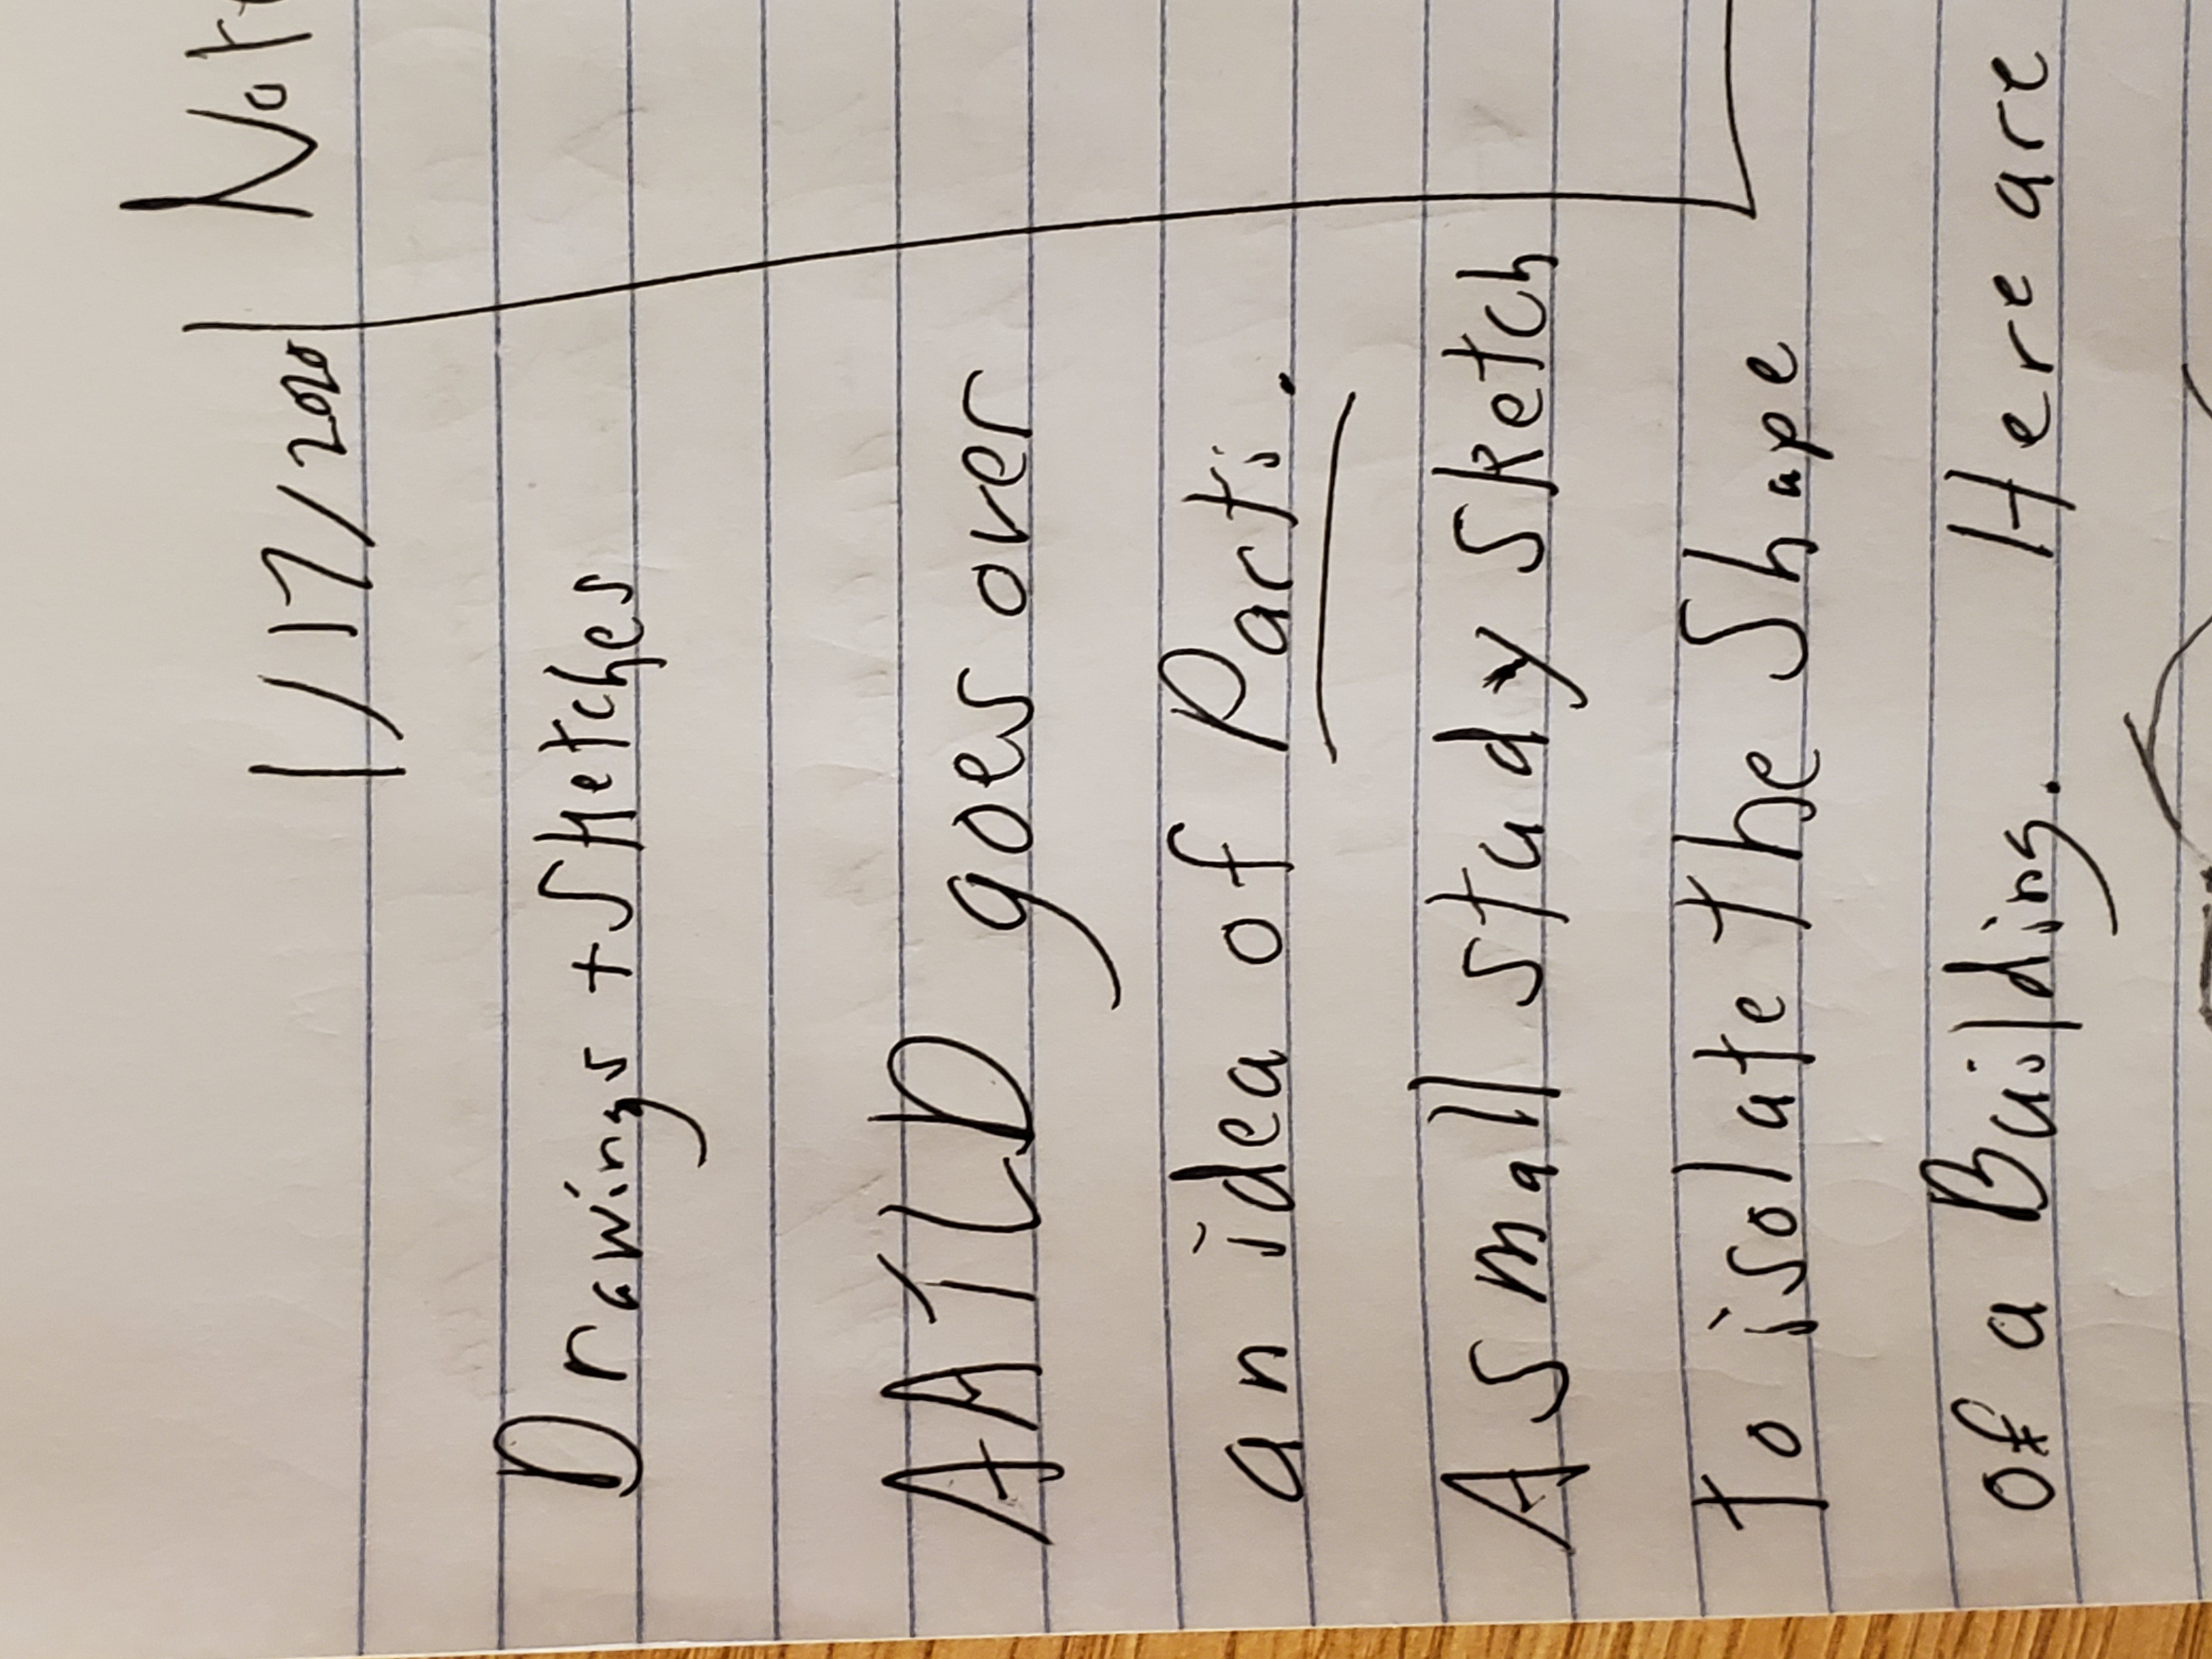 1/17/2020
Drawings + Sketches
AATLD goes over
an idea of Parti.
A small study sketch
to isolate the Shape
of a Building. Here are